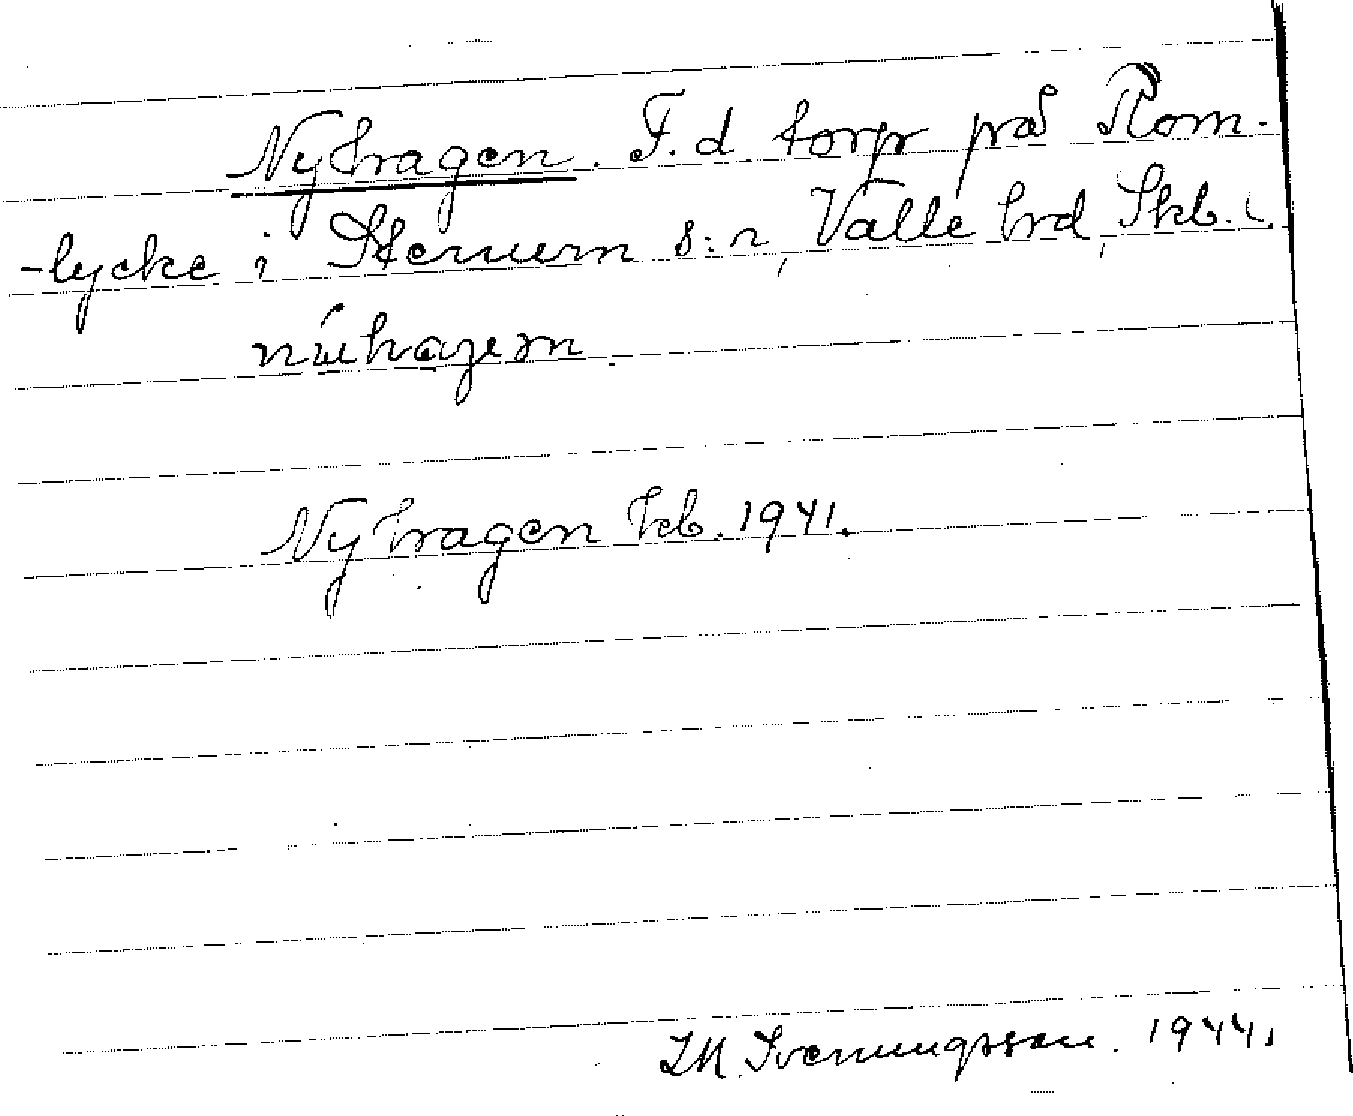 Nyhagen. F.d torp på Rom-
-lycke i Stenum s:n, Valle hrd, Skb. l.
núhagen
Nyhagen kb. 1941.
Svenungsson. 1944.